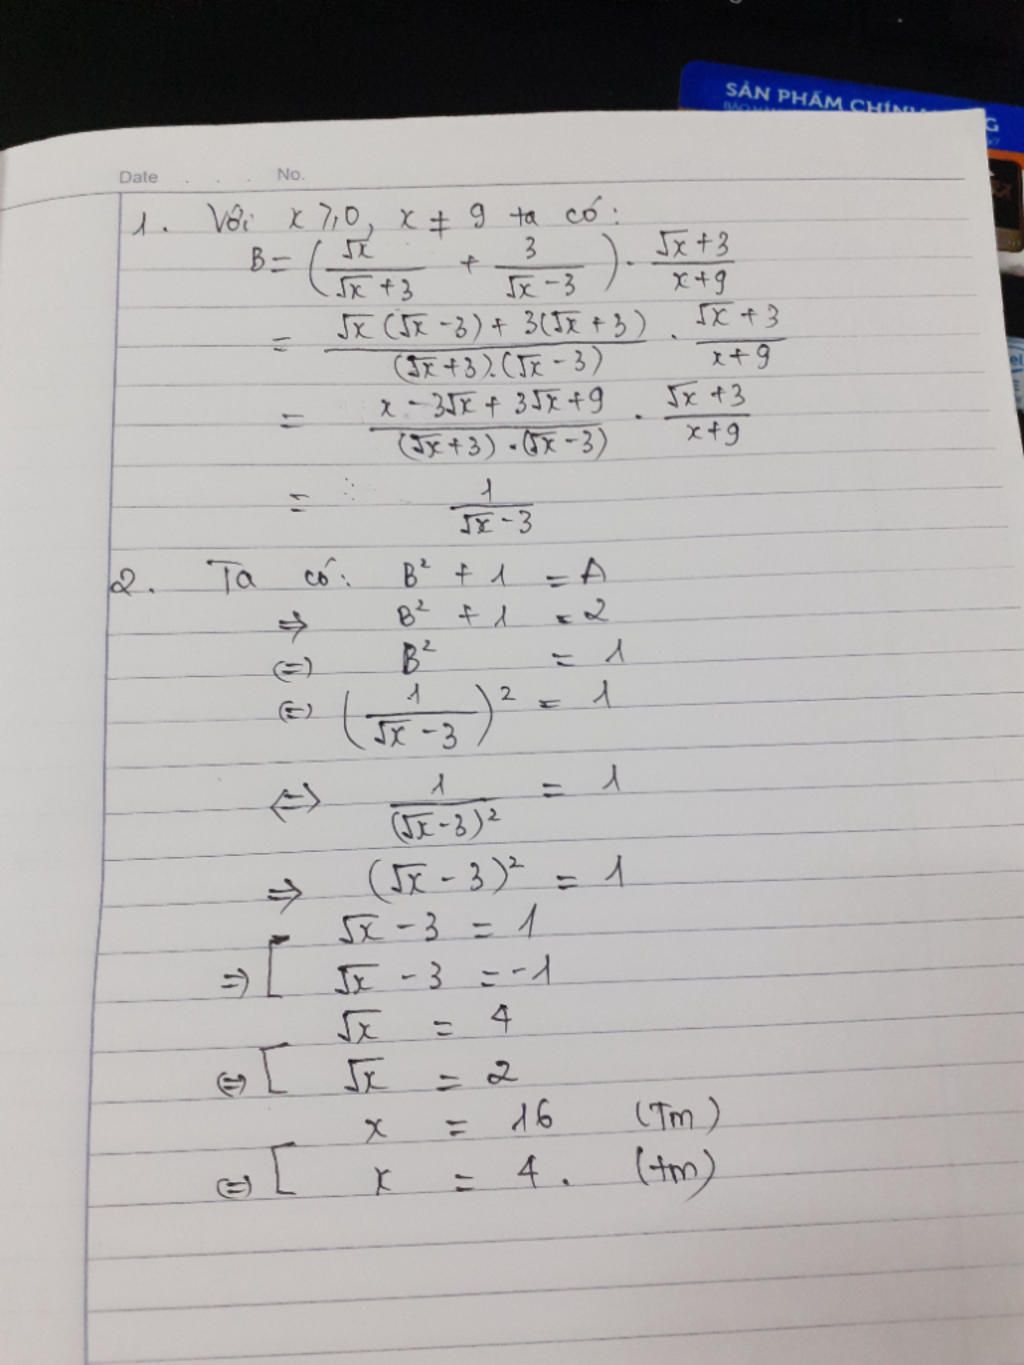 SẢN PHẨM CHÍNH
G
Date . . . No.
1. Với x ⩾ 0, x ≠ 9 ta có:
B = (√x/(√x + 3) + 3/(√x - 3)) · (√x + 3)/(x + 9)
= (√x(√x - 3) + 3(√x + 3))/((√x + 3).(√x - 3)) · (√x + 3)/(x + 9)
= (x - 3√x + 3√x + 9)/((√x + 3).(√x - 3)) · (√x + 3)/(x + 9)
= 1/(√x - 3)
2. Ta có: B² + 1 = A
⇒ B² + 1 = 2
⇔ B² = 1
⇔ (1/(√x - 3))² = 1
⇔ 1/(√x - 3)² = 1
⇒ (√x - 3)² = 1
⇒ [ √x - 3 = 1
√x - 3 = -1
⇔ [ √x = 4
√x = 2
⇔ [ x = 16 (Tm)
x = 4. (tm)